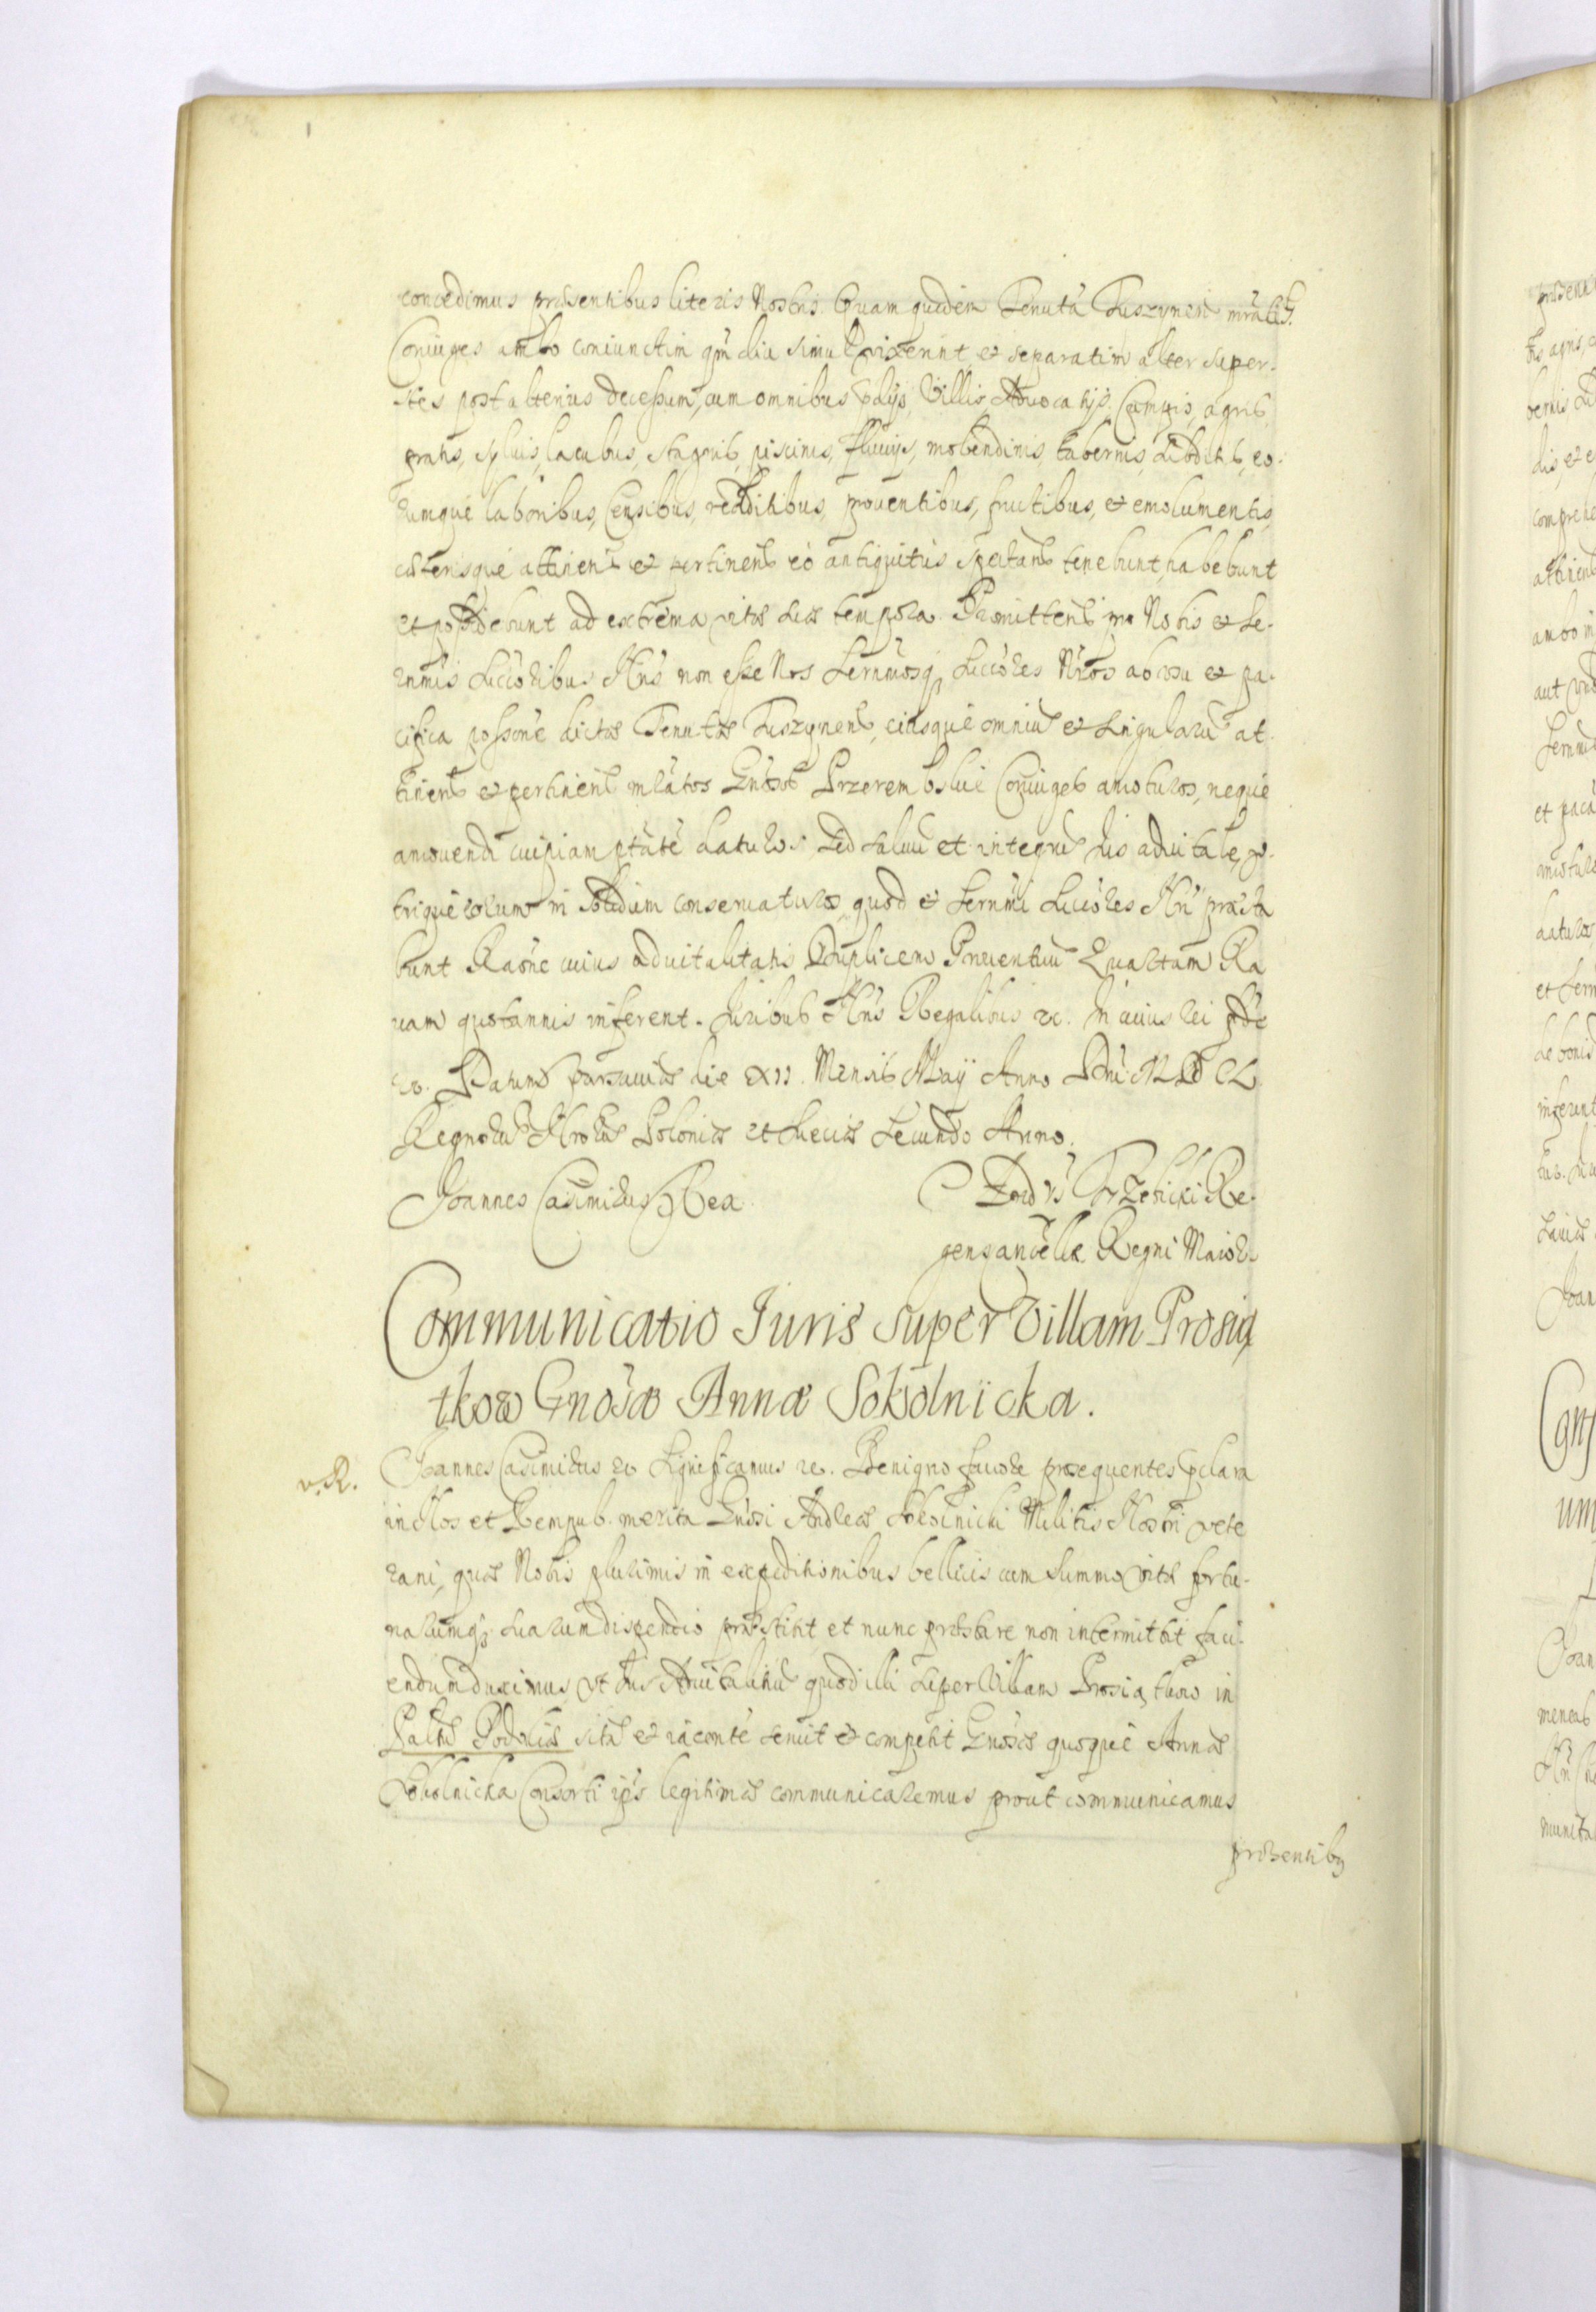 concedimus præsentibus literis Nostris. Quam quidem Tenutã Tuszynen mrati
Coniuges ambo coniunctim qm̃ diu simul vixerint, et separatim alter super-
stes post alterius decessum, cum omnibus prædijs, Villis, Advocatijs, Campis, agris,
pratis, sylvis, lacubus, stagnis, piscinis, fluvijs, molendinis, tabernis, subditis, eo-
rumque laboribus, Censibus, redditibus, proventibus, fructibus, et emolumentis,
cæterisque attinen et pertinen eò antiquitus spectan tenebunt, habebunt
et possidebunt ad extrema vitæ suæ tempora. Promitten pro Nobis et Se-
renmis Succoribus Nris non esse Nos Sernmosq Succores Nros ab usu et pa-
cifica possone dictæ Tenutæ Tuszynen, eiusque omniu et singularu at-
tinen et pertinen mlatos Gnosos Przerembskie Coniuges amoturos, neque
amovendi cuipiam ptate daturos. Sed salvu et integru Ius advitale, u-
trique eorum in solidum conservaturos, quod et Sernmi Succores Nri præsta
bunt Raone cuius advitalitatis Duplicem Proventuu Quartam Ra
vam quotannis inferent. Iuribus Nris Regalibus etc. In cuius rei fide
etc. Datum Varsaviæ die XII. Mensis Maij Anno Dni MDCL
Regnoru Nroru Poloniæ et Sueciæ Secundo Anno.
Joannes Casimirus Rex. Andrs Trzebicki Re-
gens Cancellæ Regni Maior.
Communicatio Iuris super Villam Prosią
tkow Gnosæ Annæ Sokolnicka.
v. R. Joannes Casimirus etc Significamus etc. Benigno favore prosequentes præclara
in Nos et Rempub. merita Gnosi Andreæ Milits Nostri vete
rani, quæ Nobis plurimis in expeditionibus bellicis cum summo vitæ fortu-
narumq suarum dispendio præstitit et nunc præstare non intermittit faci-
endum duximus, ut Ius Advitalitiu quod illi super Villam Prosiątkow in
Paltu Podoliæ sita et iacente servit et competit Gnosæ quoque Annæ
Sokolnicka Consorti ips legitimæ communicaremus prout communicamus
præsentibq